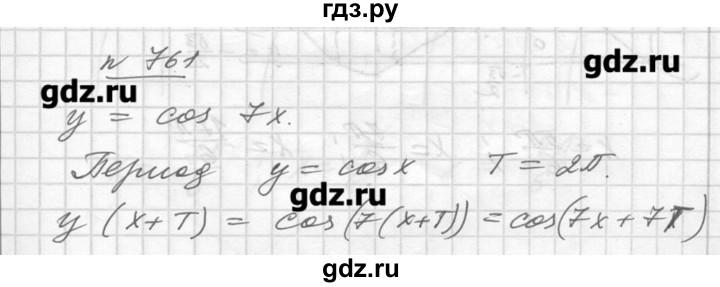 гдз.ру
n 761
gdz.ru
gdz.ru
y = cos 7x.
Период y = cos x T = 2π.
gdz.ru
y (x+T) = cos(7(x+T)) = cos(7x + 7T)
gdz.ru